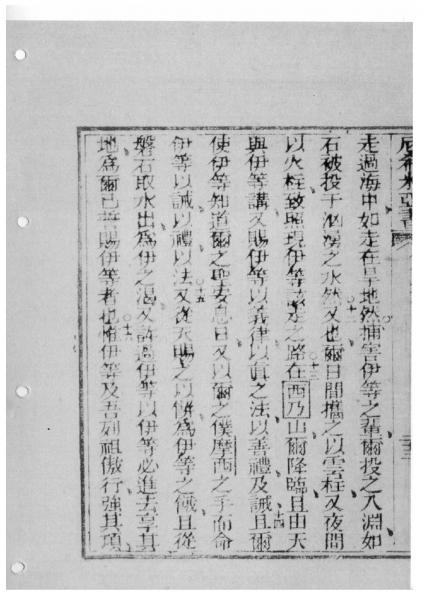 尼希米亞書
走過海中如走在旱地然捕害伊等之輩爾投之入淵如
石被投于汹湧之水然○十二又也爾日間攜之以雲柱又夜間
以火柱致照現伊等走之路○十三在西乃山爾降臨且由天
與伊等講又賜伊等以義律以真之法以善禮及誡○十四且爾
使伊等知道爾之聖安息日又以爾之僕摩西之手而命
伊等以誡以禮以法○十五又從天賜之以餅為伊等之餓且從
磐石取水出為伊之渴又許過伊等以伊等必進去享其
地為爾已誓賜伊等者也○十六惟伊等及吾列祖傲行強其項